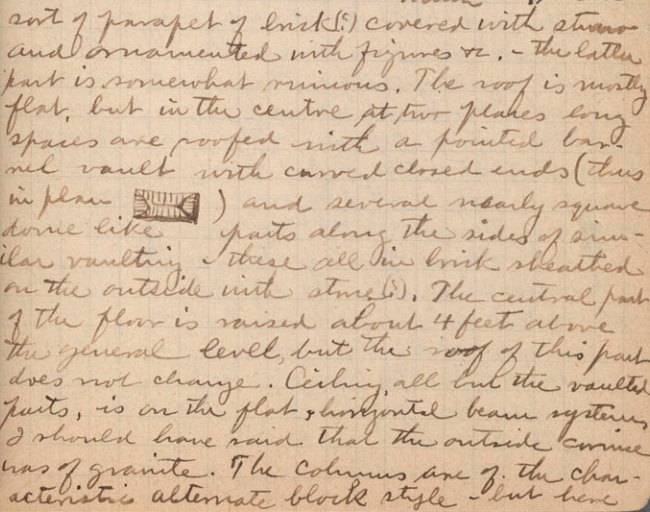 sort of parapet of brick(?) covered with stucco
and ornamented with figures &c. - the latter
part is somewhat ruinous. The roof is mostly
flat, but in the centre at two places long
spaces are roofed with a pointed bar-
rel vault with curved closed ends (thus
in plan ) and several nearly square
dome like parts along the sides of sim-
ilar vaulting - these all in brick sheathed
on the outside with stone(?). The central part
of the floor is raised about 4 feet above
the general level, but the roof of this part
does not change. Ceiling, all but the vaulted
parts, is on the flat & horizontal beam system
I should have said that the outside cornice
was of granite. The columns are of the char-
acteristic alternate block style - but here